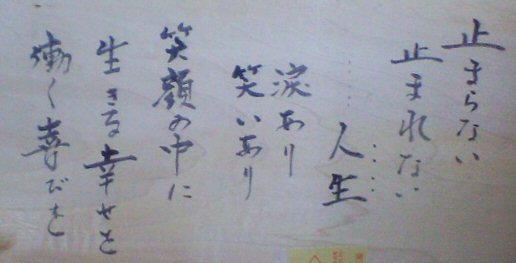 止まらない
止まれない
……人生……
涙あり
笑いあり
笑顔の中に
生きる幸せと
働く喜びを